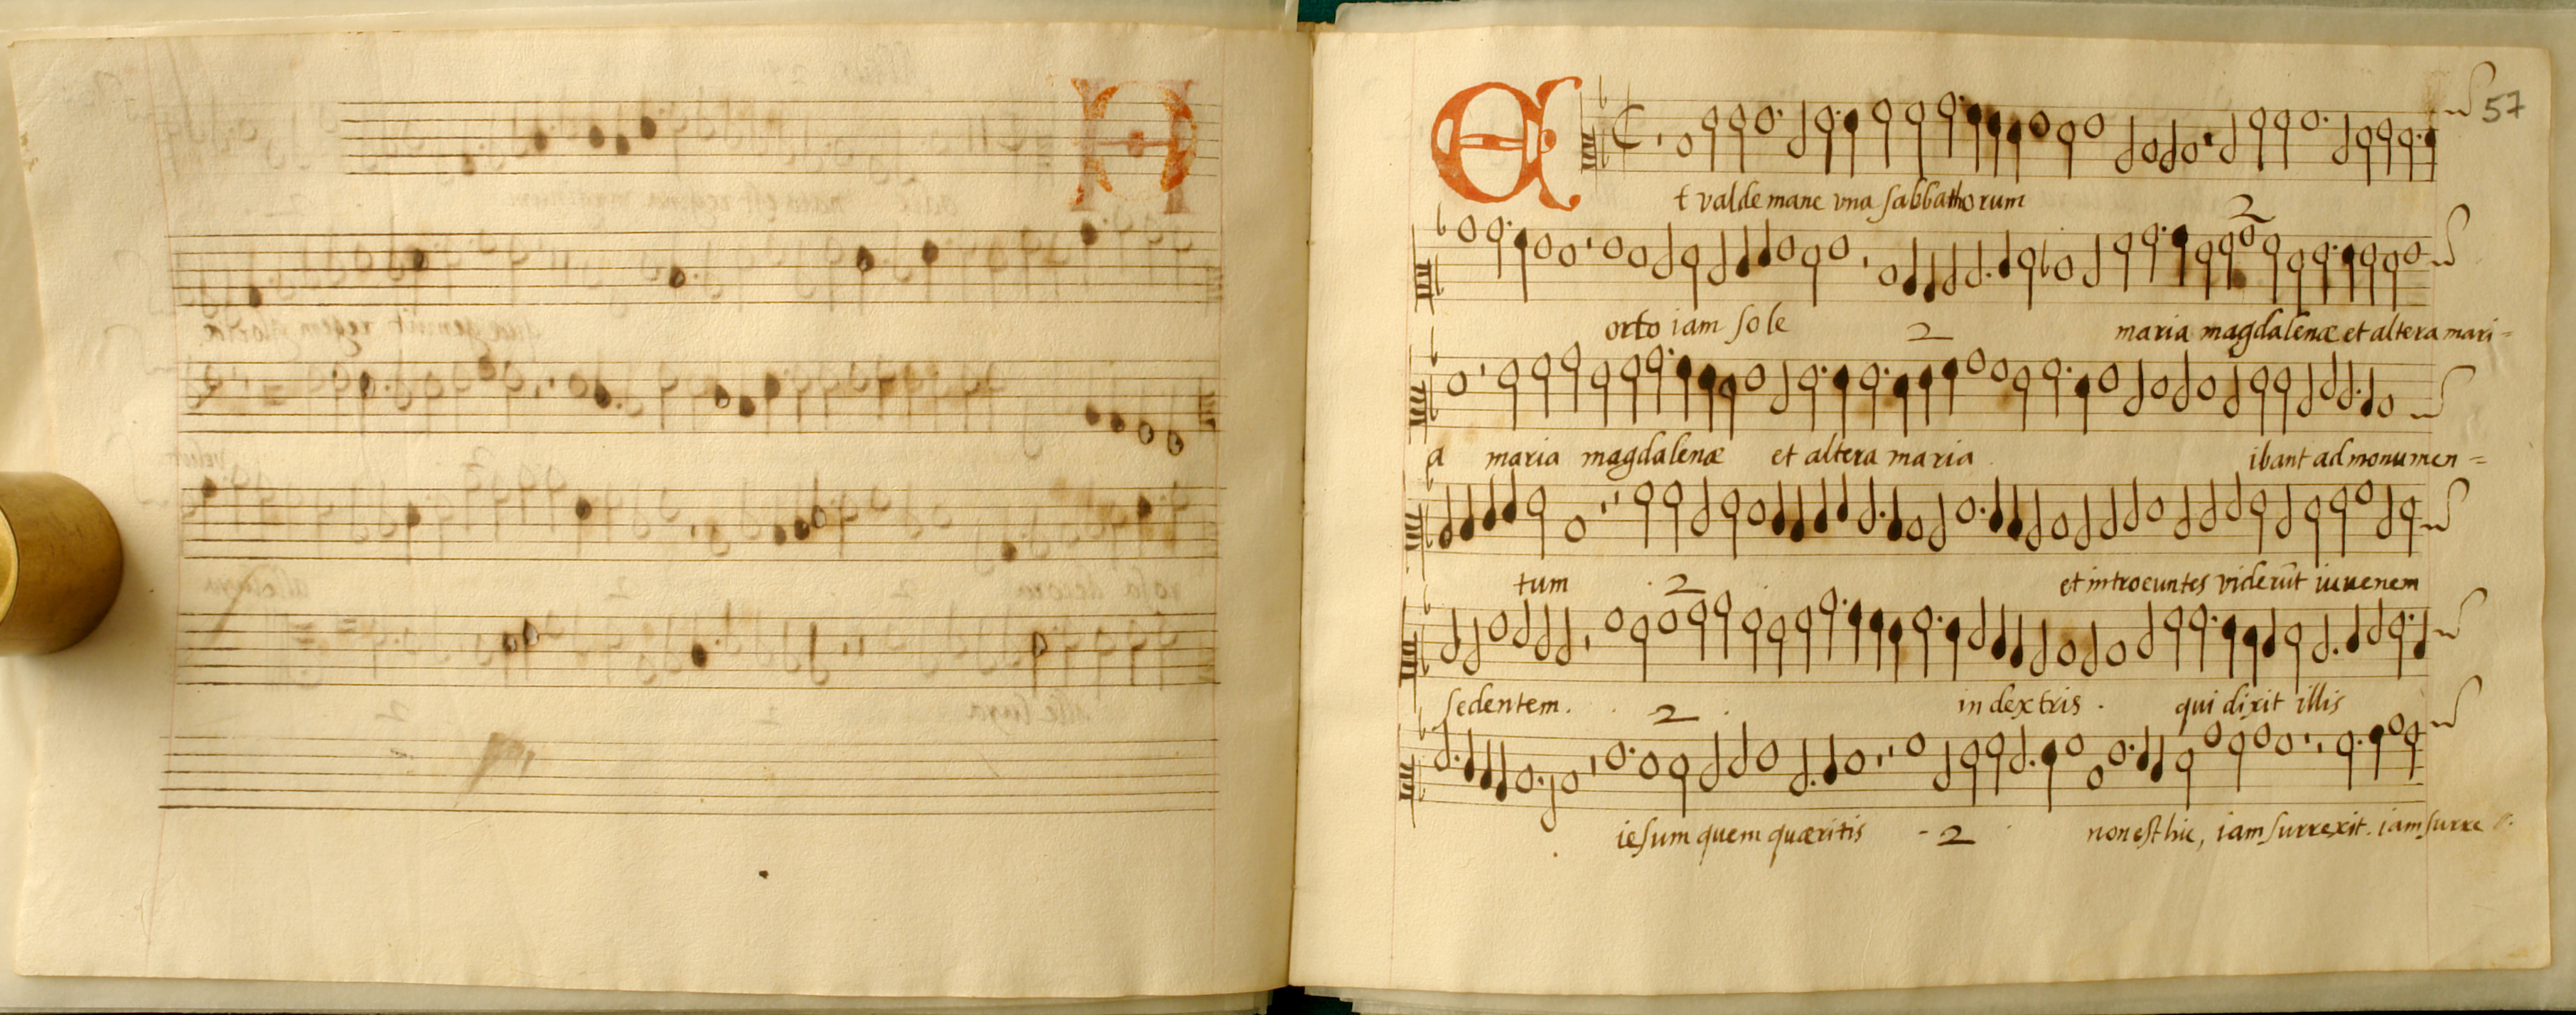 57
Et valde mane vna sabbathorum
2
orto iam sole 2 maria magdalenæ et altera mari=
a maria magdalenæ et altera maria . ibant ad monumen=
tum . 2 . et introeuntes viderūt iuuenem
sedentem . . 2 . in dextris . qui dixit illis
iesum quem quæritis - 2 . non est hic, iam surrexit. iam surre